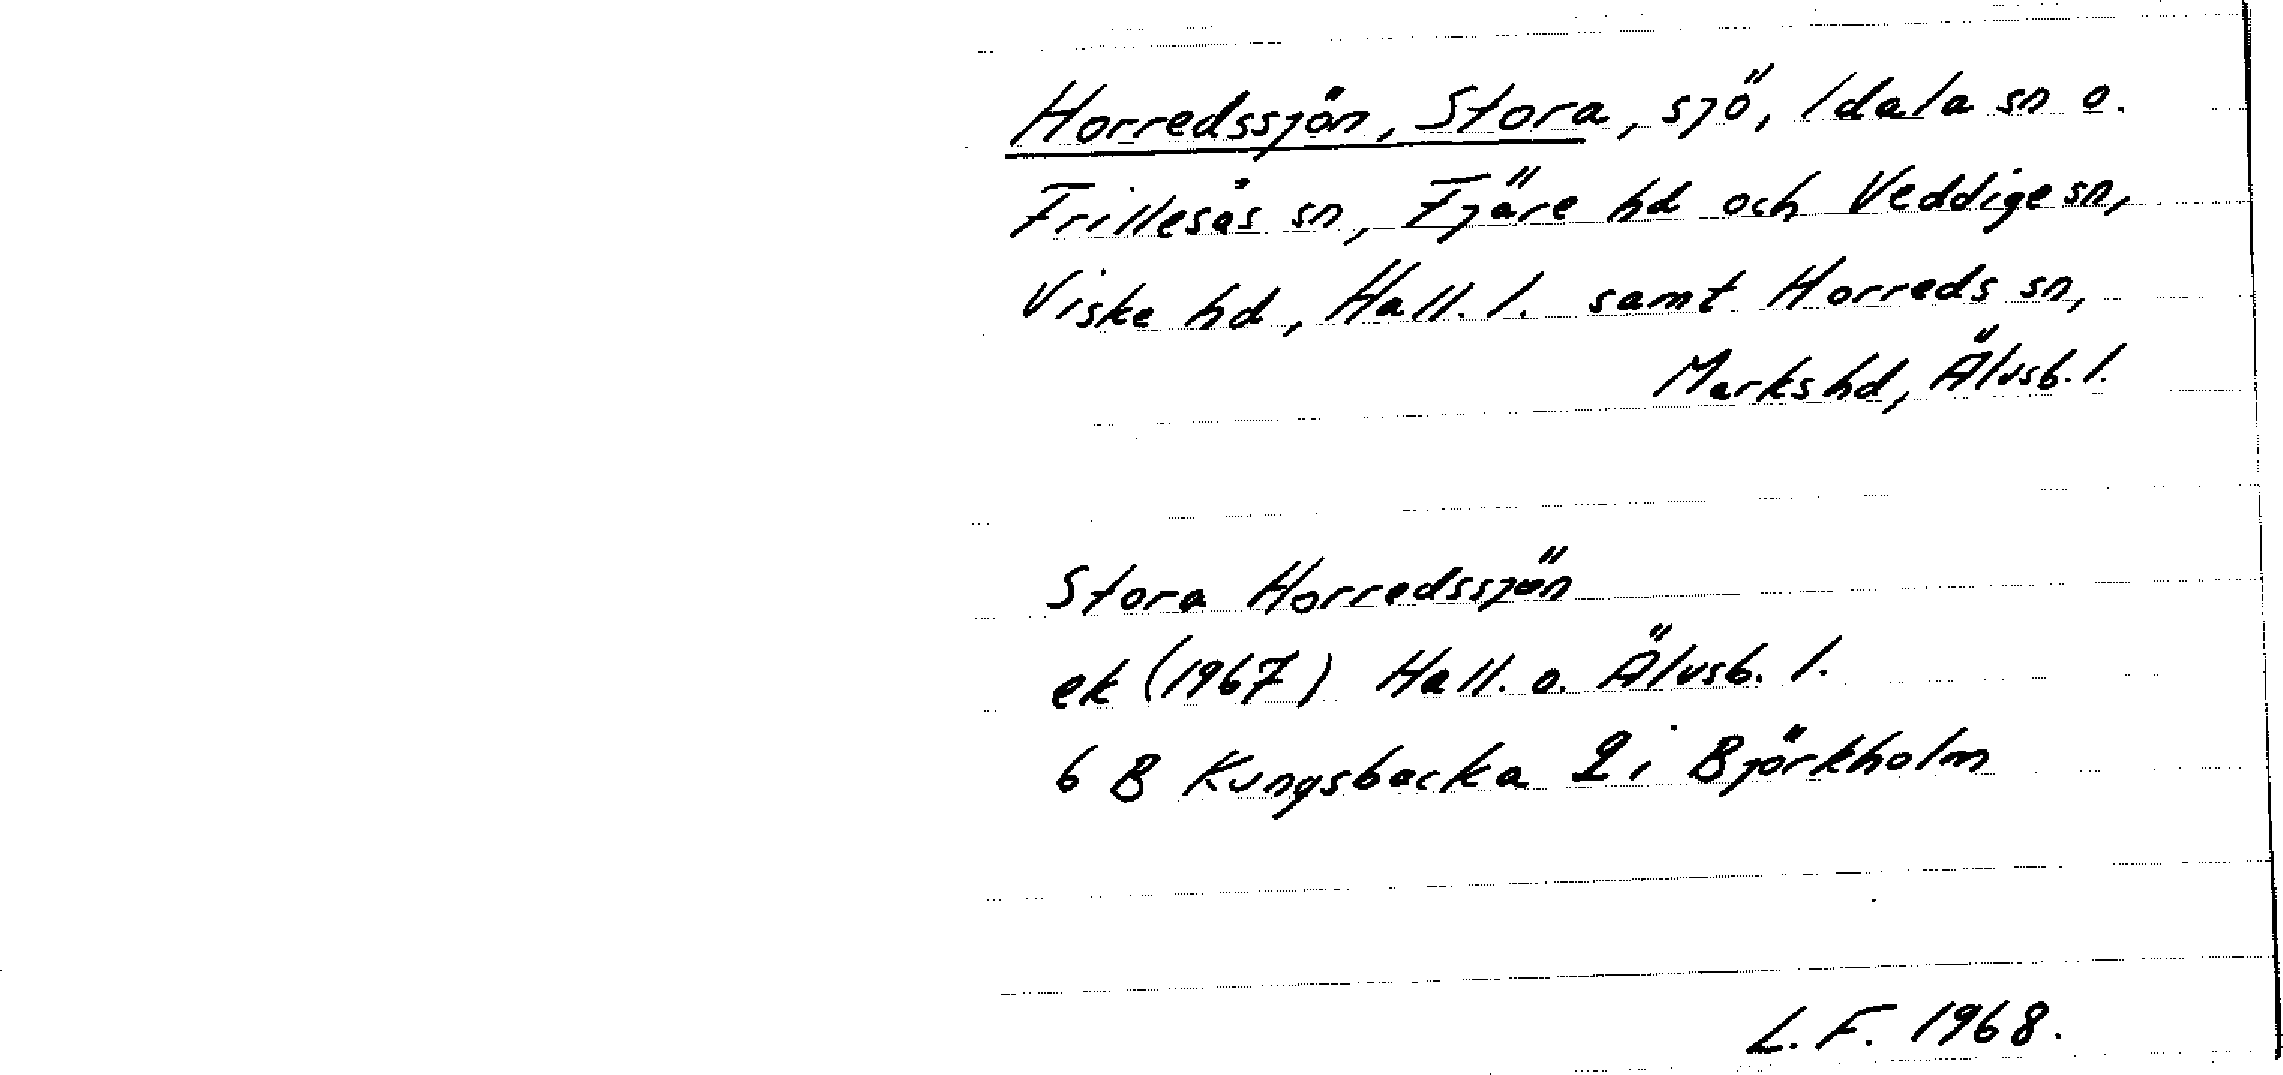 Horredssjön, Stora, sjö, Idala sn o.
Frillesås sn, Fjäre hd och Veddige sn,
Viske hd, Hall. l. samt Horreds sn,
Marks hd, Älvsb. l.
Stora Horredssjön
ek (1967) Hall. o. Älvsb. l.
6 B Kungsbacka 2 i Björkholm
L. F. 1968.